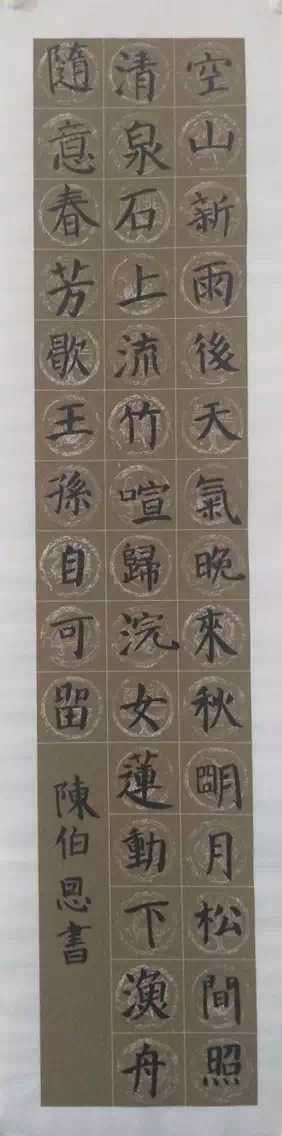 空山新雨後天氣晚來秋明月松間照
清泉石上流竹喧歸浣女蓮動下漁舟
隨意春芳歇王孫自可留
陳伯恩書